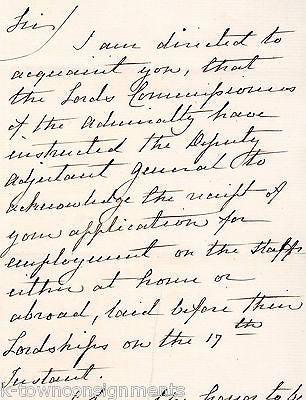 Sir/
I am directed to
acquaint you, that
the Lords Commissioners
of the Admiralty have
instructed the Deputy
Adjutant General to
acknowledge the receipt of
your application for
employment on the Staff
either at home or
abroad, laid before their
Lordships on the 17th
Instant.
honor to
k-townconsignments